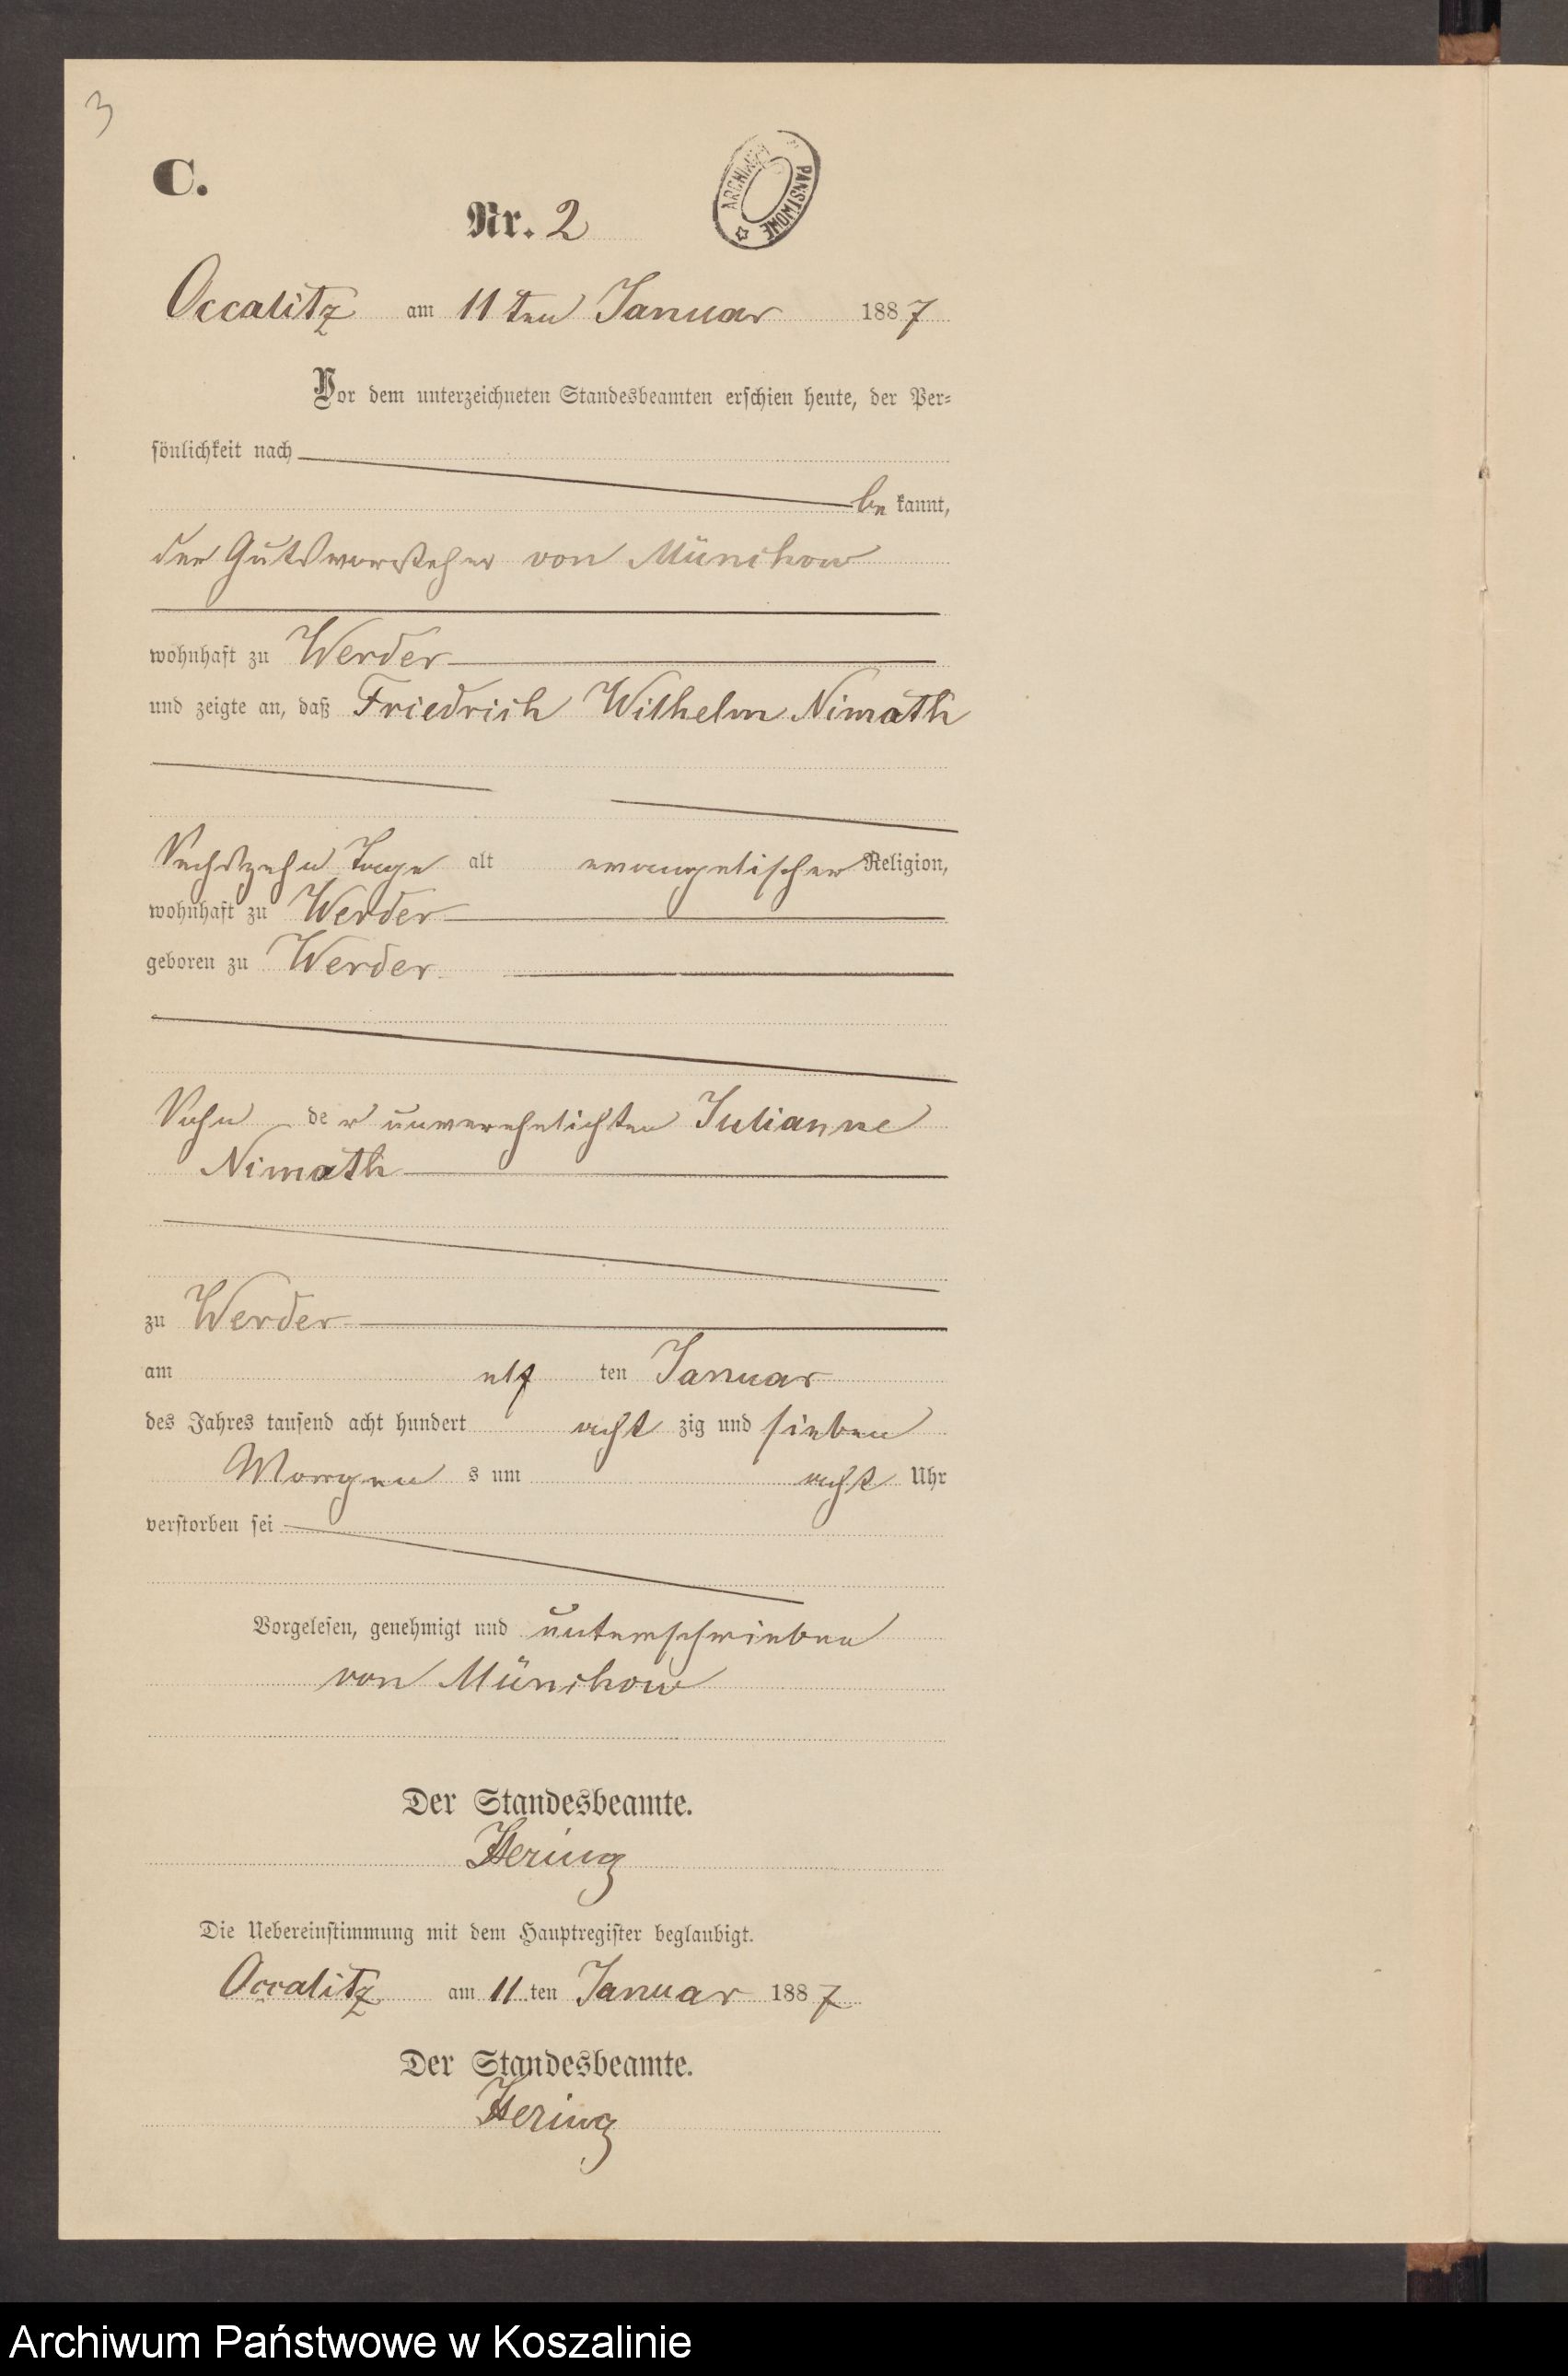 3
C.
ARCHIWUM PAŃSTWOWE
Nr. 2
Occalitz am 11ten Januar 1887
Vor dem unterzeichneten Standesbeamten erschien heute, der Per-
sönlichkeit nach
be kannt,
der Gutsvorsteher von Münchow
wohnhaft zu Werder
und zeigte an, daß Friedrich Wilhelm Nimath
Sechszehn Tage alt evangelischer Religion,
wohnhaft zu Werder
geboren zu Werder
Sohn de r unverehelichten Julianne
Nimath
zu Werder
am elf ten Januar
des Jahres tausend acht hundert acht zig und sieben
Morgen s um acht Uhr
verstorben sei
Vorgelesen, genehmigt und unterschrieben
von Münchow
Der Standesbeamte.
Hering
Die Uebereinstimmung mit dem Hauptregister beglaubigt.
Occalitz am 11 ten Januar 1887
Der Standesbeamte.
Hering
Archiwum Państwowe w Koszalinie